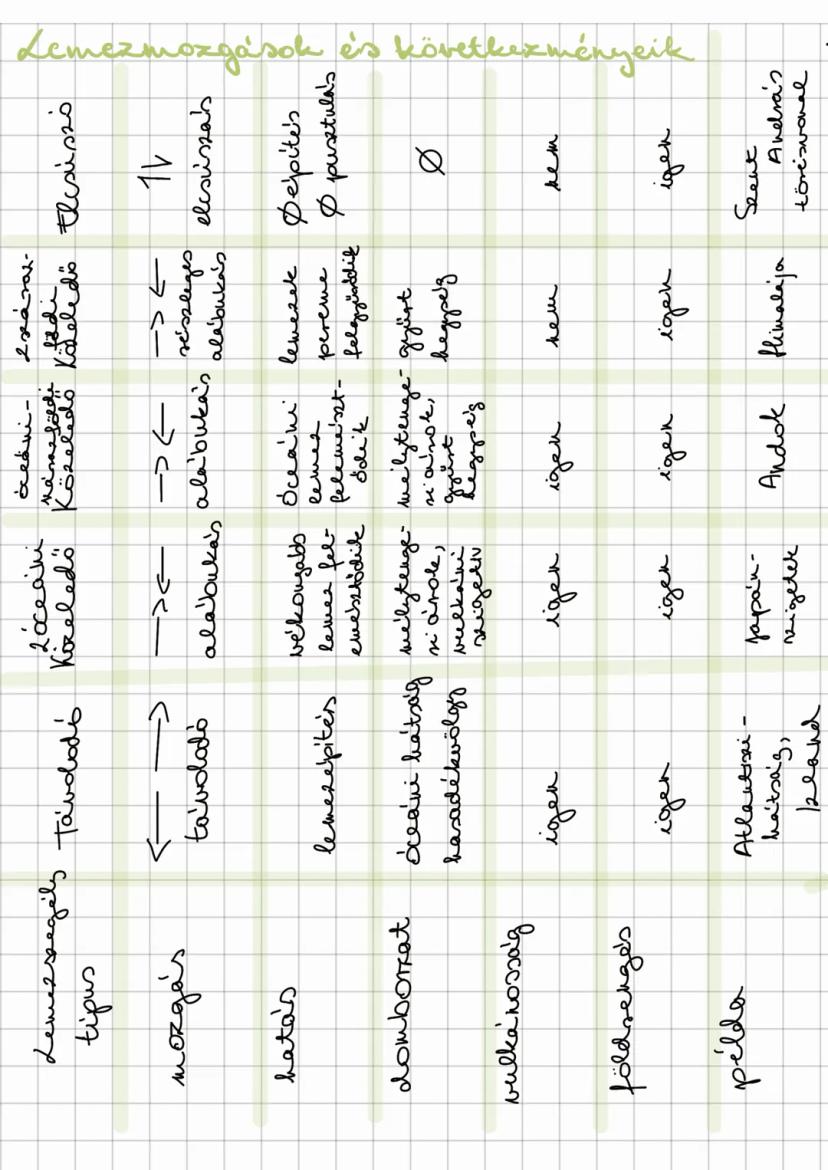 Lemezmozgások és következményeik
Lemezszegély
típus
Távolodó
2óceáni
közeledő
óceáni-
szárazföldi
közeledő
2száraz-
földi
közeledő
Elcsúszó
mozgás
← →
távolodó
→←
alábukás
→←
alábukás
→←
részleges
alábukás
↑↓
elcsúszás
hatás
lemezépítés
vékonyabb
lemez fel-
emésztődik
Óceáni
lemez
felemészt-
ődik
lemezek
pereme
felgyűrődik
∅ építés
∅ pusztulás
domborzat
Óceáni hátság
hasadékvölgy
mélytenge-
ri árok,
vulkáni
szigetív
mélytenge-
ri árok,
gyűrt
hegység
gyűrt
hegység
∅
vulkánosság
igen
igen
igen
nem
nem
földrengés
igen
igen
igen
igen
igen
példa
Atlantszi-
hátság,
Izland
Japán-
szigetek
Andok
Himalája
Szent
András
törésvonal